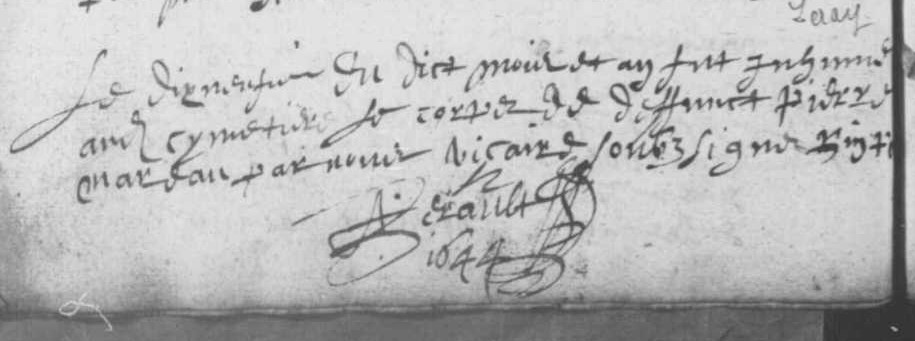 Leray
Le dixneufiem du dict mois et an fut Inhumé
audt cymetiere le corps de deffunct Pierre
mareau par nous vicaire soubz signe
Perault
1644